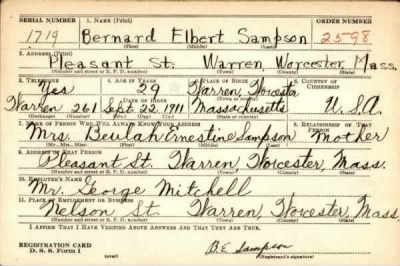 SERIAL NUMBER 1. NAME (Print) ORDER NUMBER
1719 Bernard Elbert Sampson 2598
(First) (Middle) (Last)
2. ADDRESS (Print)
Pleasant St. Warren, Worcester, Mass.
(Number and street or R. F. D. number) (Town) (County) (State)
3. TELEPHONE 4. AGE IN YEARS 5. PLACE OF BIRTH 6. COUNTRY OF CITIZENSHIP
Yes 29 Warren, Worcester
(Town or county)
DATE OF BIRTH
Warren 261 Sept. 22, 1911 Massachusetts U.S.A.
(Exchange) (Number) (Mo.) (Day) (Yr.) (State or country)
7. NAME OF PERSON WHO WILL ALWAYS KNOW YOUR ADDRESS 8. RELATIONSHIP OF THAT PERSON
Mrs. Beulah Ernestine Sampson Mother
(Mr., Mrs., Miss) (First) (Middle) (Last)
9. ADDRESS OF THAT PERSON
Pleasant St. Warren, Worcester, Mass.
(Number and street or R. F. D. number) (Town) (County) (State)
10. EMPLOYER'S NAME
Mr. George Mitchell
11. PLACE OF EMPLOYMENT OR BUSINESS
Nelson St. Warren, Worcester, Mass
(Number and street or R. F. D. number) (Town) (County) (State)
I AFFIRM THAT I HAVE VERIFIED ABOVE ANSWERS AND THAT THEY ARE TRUE.
REGISTRATION CARD
D. S. S. Form 1 B.E. Sampson
(Registrant's signature)